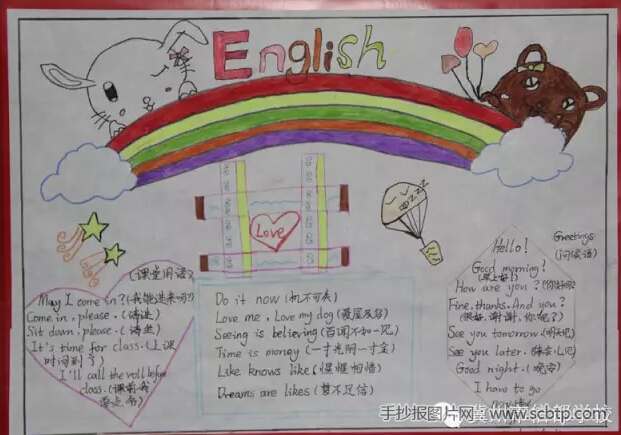 English
Love
(课堂用语)
May I come in?(我能进来吗?)
Come in, please.(请进)
Sit down, please.(请坐)
It's time for class.(上课
时间到了)
I'll call the roll before
class.(课前我
要点名)
Do it now (机不可失)
Love me, Love my dog (爱屋及乌)
Seeing is believing (百闻不如一见)
Time is money (一寸光阴一寸金)
Like knows like (惺惺相惜)
Dreams are likes (梦不足信)
Greetings
(问候语)
Hello!
Good morning!
(早上好!)
How are you?(你好吗?)
Fine, thanks. And you?
(很好,谢谢,你呢?)
See you tomorrow.(明天见)
See you later.
Good night.(晚安)
I have to go
now
手抄报图片网 www.scbtp.com